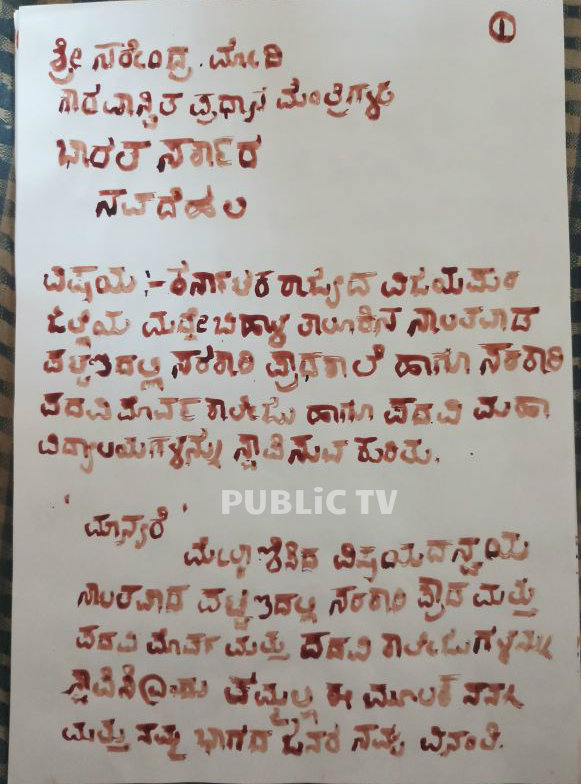 1
ಶ್ರೀ ನರೇಂದ್ರ ಮೋದಿ
ಗೌರವಾನ್ವಿತ ಪ್ರಧಾನ ಮಂತ್ರಿಗಳು
ಭಾರತ ಸರ್ಕಾರ
ನವದೆಹಲಿ
ವಿಷಯ :- ಕರ್ನಾಟಕ ರಾಜ್ಯದ ವಿಜಯಪುರ
ಜಿಲ್ಲೆಯ ಮುದ್ದೇಬಿಹಾಳ ತಾಲೂಕಿನ ನಾಲತವಾಡ
ಪಟ್ಟಣದಲ್ಲಿ ಸರಕಾರಿ ಪ್ರೌಢಶಾಲೆ ಹಾಗೂ ಸರಕಾರಿ
ಪದವಿ ಪೂರ್ವ ಕಾಲೇಜು ಹಾಗೂ ಪದವಿ ಮಹಾ
ವಿದ್ಯಾಲಯಗಳನ್ನು ಸ್ಥಾಪಿಸುವ ಕುರಿತು.
PUBLiC TV
' ಮಾನ್ಯರೆ '
ಮೇಲ್ಕಾಣಿಸಿದ ವಿಷಯದನ್ವಯ
ನಾಲತವಾಡ ಪಟ್ಟಣದಲ್ಲಿ ಸರಕಾರಿ ಪ್ರೌಢ ಮತ್ತು
ಪದವಿ ಪೂರ್ವ ಮತ್ತು ಪದವಿ ಕಾಲೇಜುಗಳನ್ನು
ತಮ್ಮಲ್ಲಿ ಈ ಮೂಲಕ ನನ್ನ
ಮತ್ತು ನಮ್ಮ ಭಾಗದ ಜನರ ನಮ್ರ ವಿನಂತಿ.